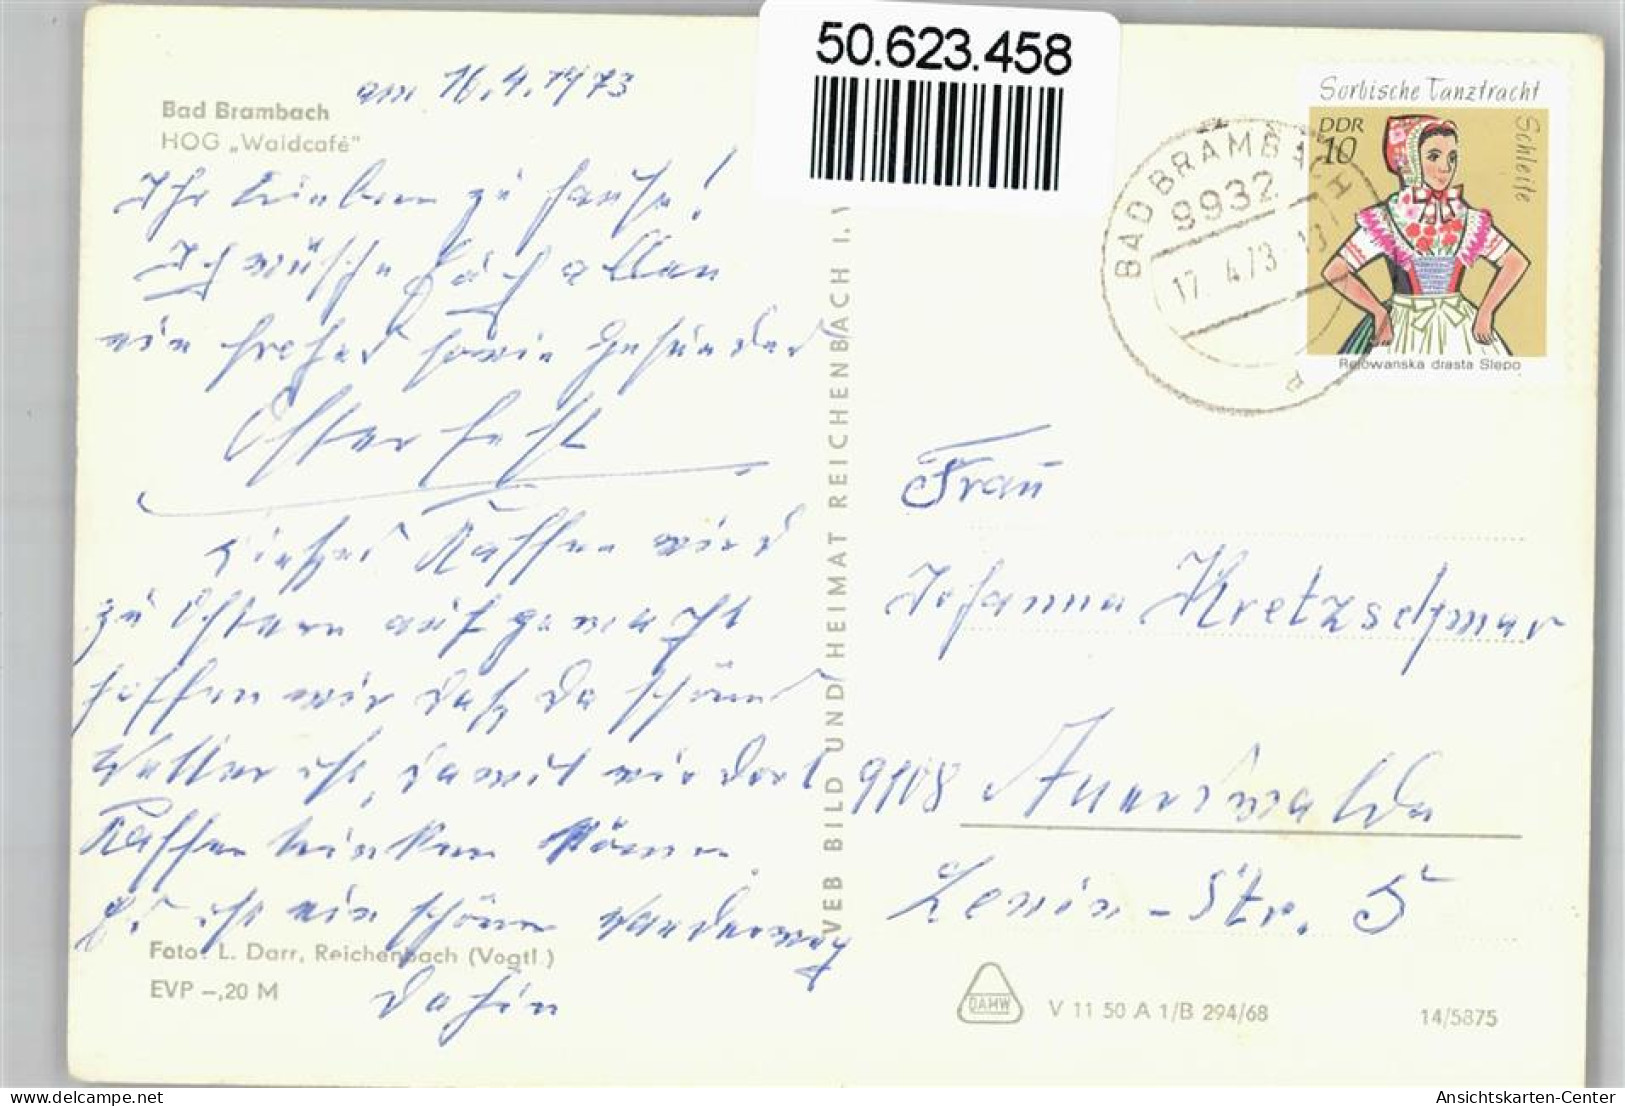 50.623.458
Bad Brambach
HOG „Waldcafé"
am 16.4.1973
Ihr Lieben zu Hause!
Ich wünsche Euch allen
ein frohes sowie gesundes
Osterfest
Dieses Kaffee wird
zu Ostern aufgemacht
hoffen wir daß da schönes
Wetter ist, damit wir dort
Kaffee trinken können.
Es ist ein schöner Wanderweg
dahin
Foto: L. Darr, Reichenbach (Vogtl.)
EVP –,20 M
VEB BILD UND HEIMAT REICHENBACH I. V
BAD BRAMBACH
9932
17. 4.73-13
Sorbische Tanztracht
Schleife
DDR
10
Rejowanska drasta Slepo
Frau
Johanna Kretzschmar
9108 Auerswalde
Lenin-Str. 5
DAMW
V 11 50 A 1/B 294/68
14/5875
Ansichtskarten-Center